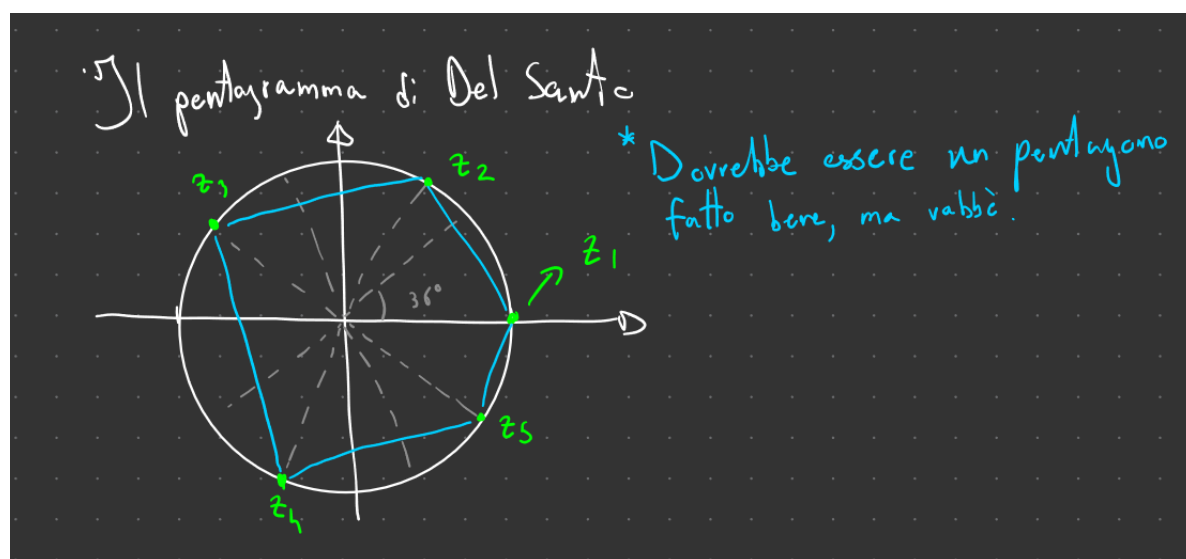 Il pentagramma di Del Santo
* Dovrebbe essere un pentagono
fatto bene, ma vabbè.
z₃
z₂
z₁
36°
z₅
z₄